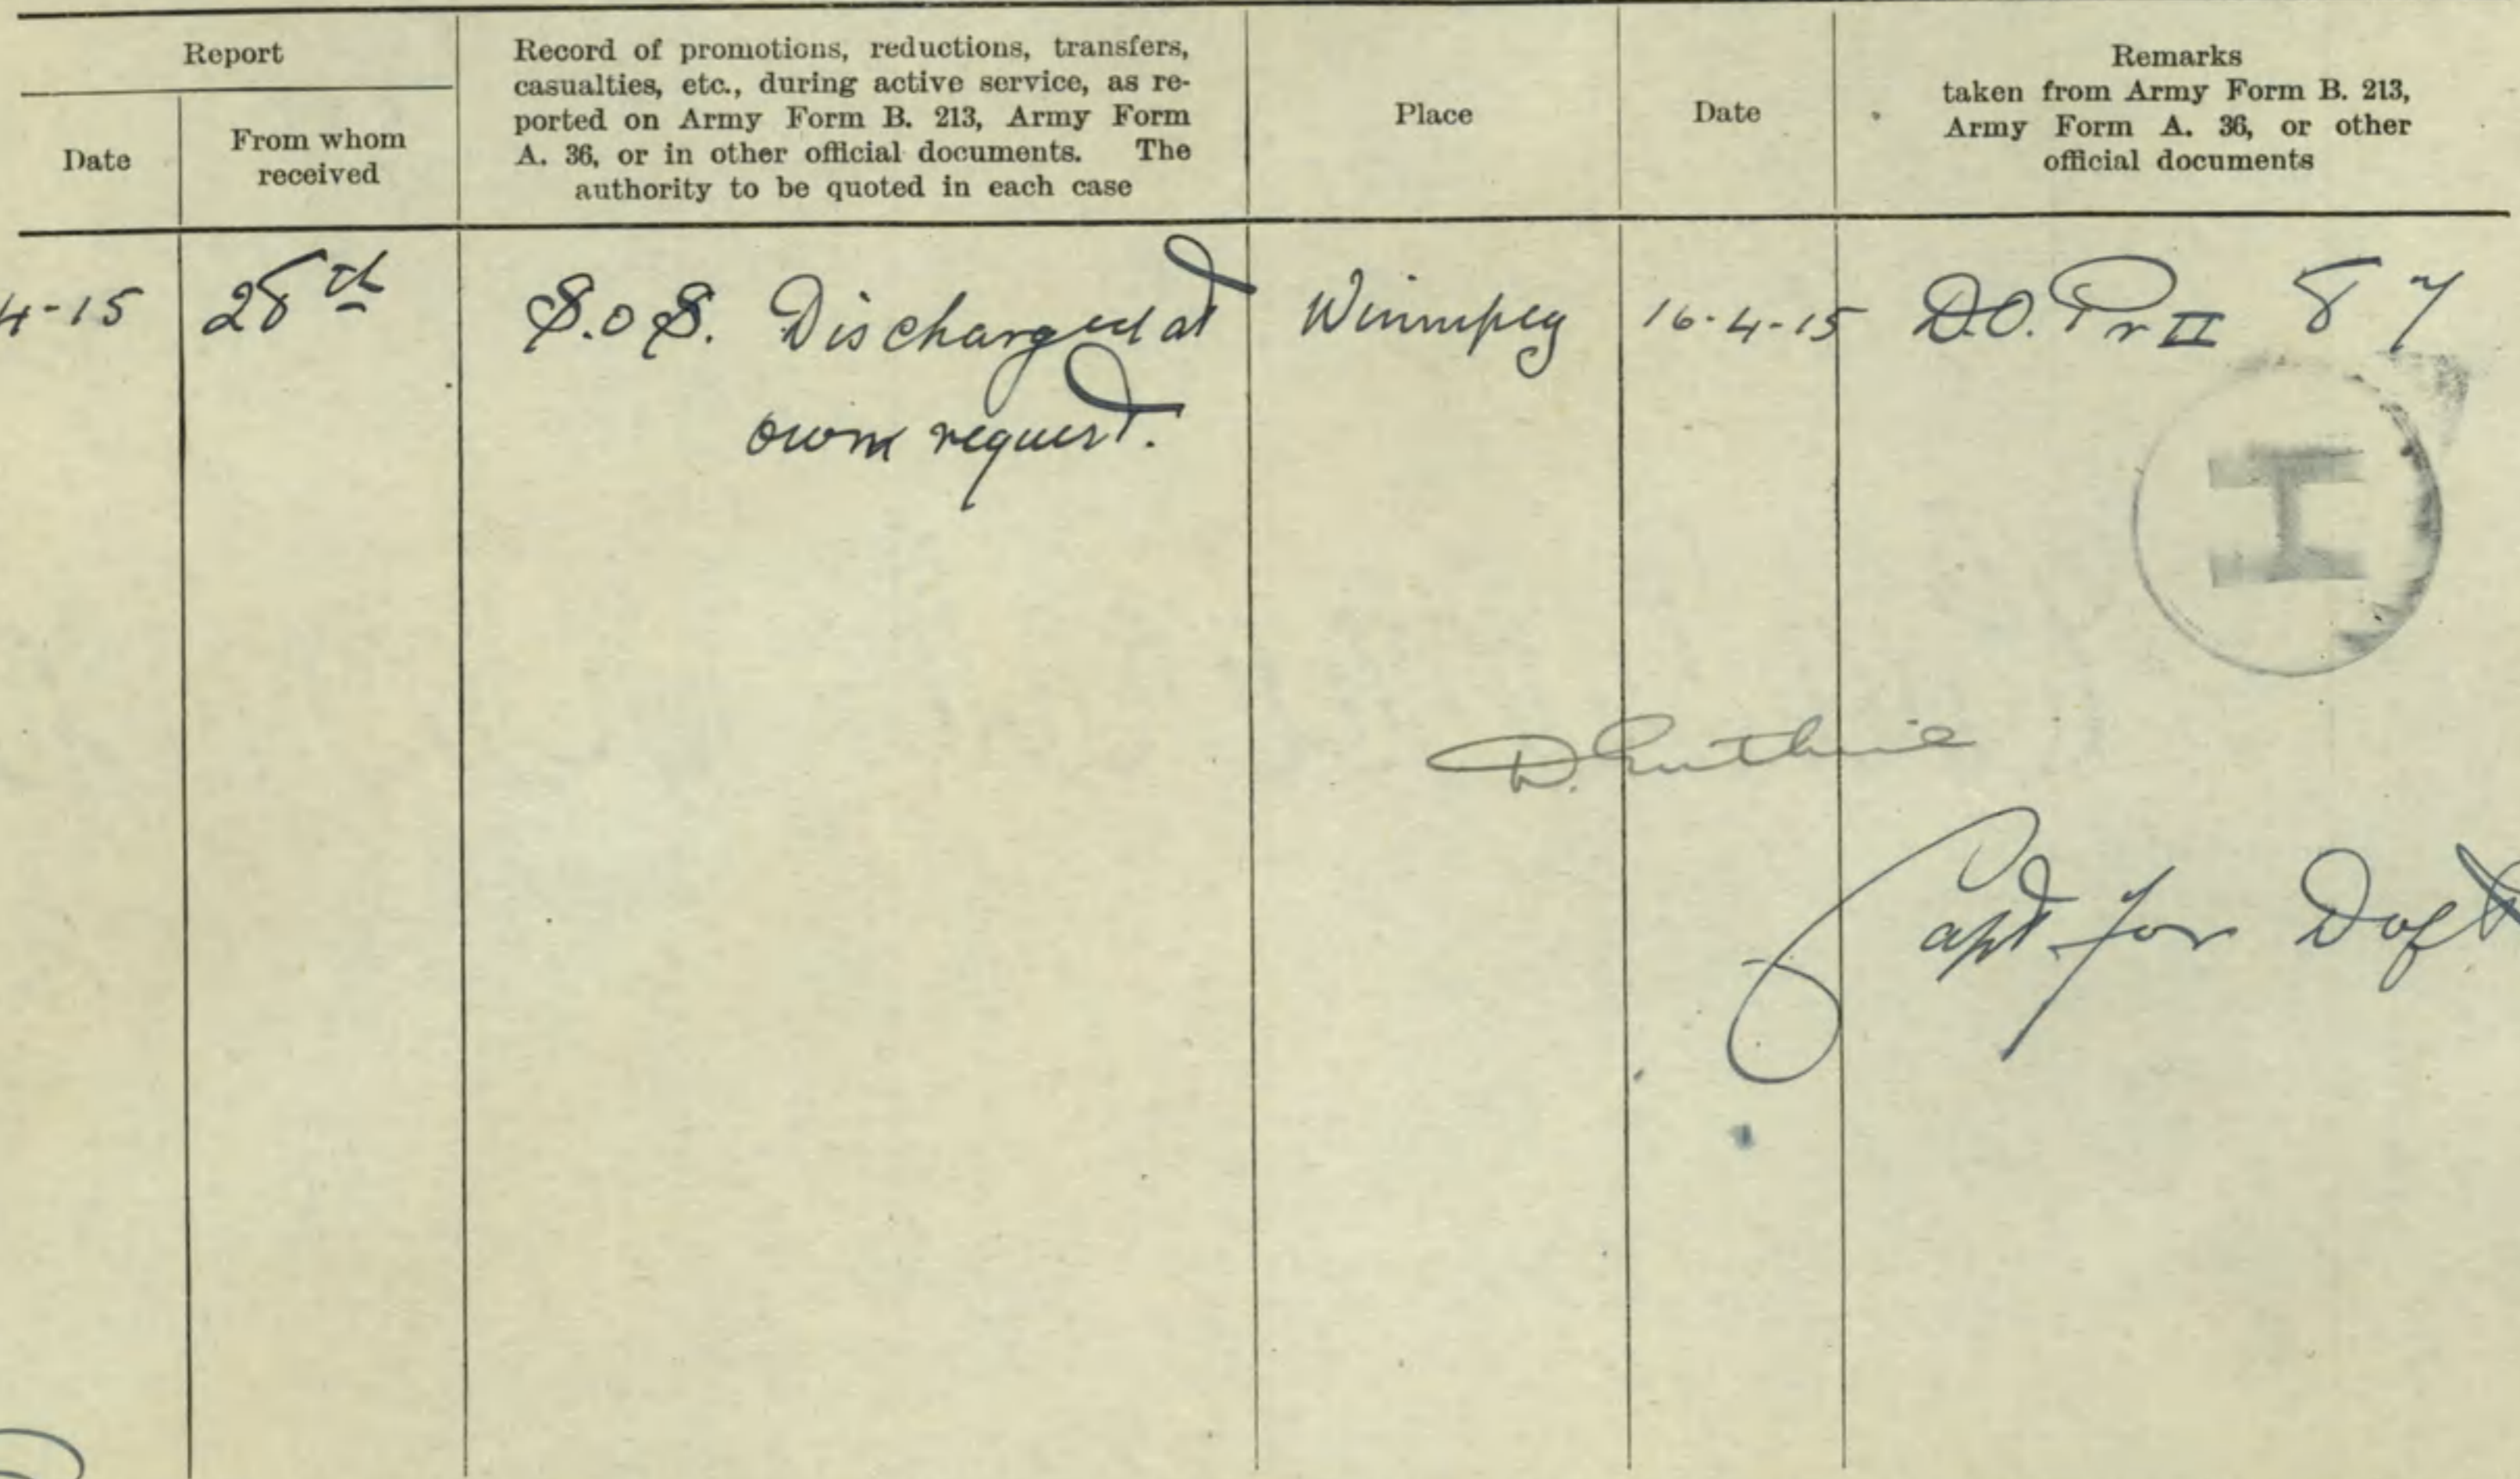 Report
Date
From whom
received
Record of promotions, reductions, transfers,
casualties, etc., during active service, as re-
ported on Army Form B. 213, Army Form
A. 36, or in other official documents. The
authority to be quoted in each case
Place
Date
Remarks
taken from Army Form B. 213,
Army Form A. 36, or other
official documents
4-15
28th
S.o.S. Discharged at
own request.
Winnipeg
16-4-15
D.O. Pr II 87
H
D. Guthrie
Capt for